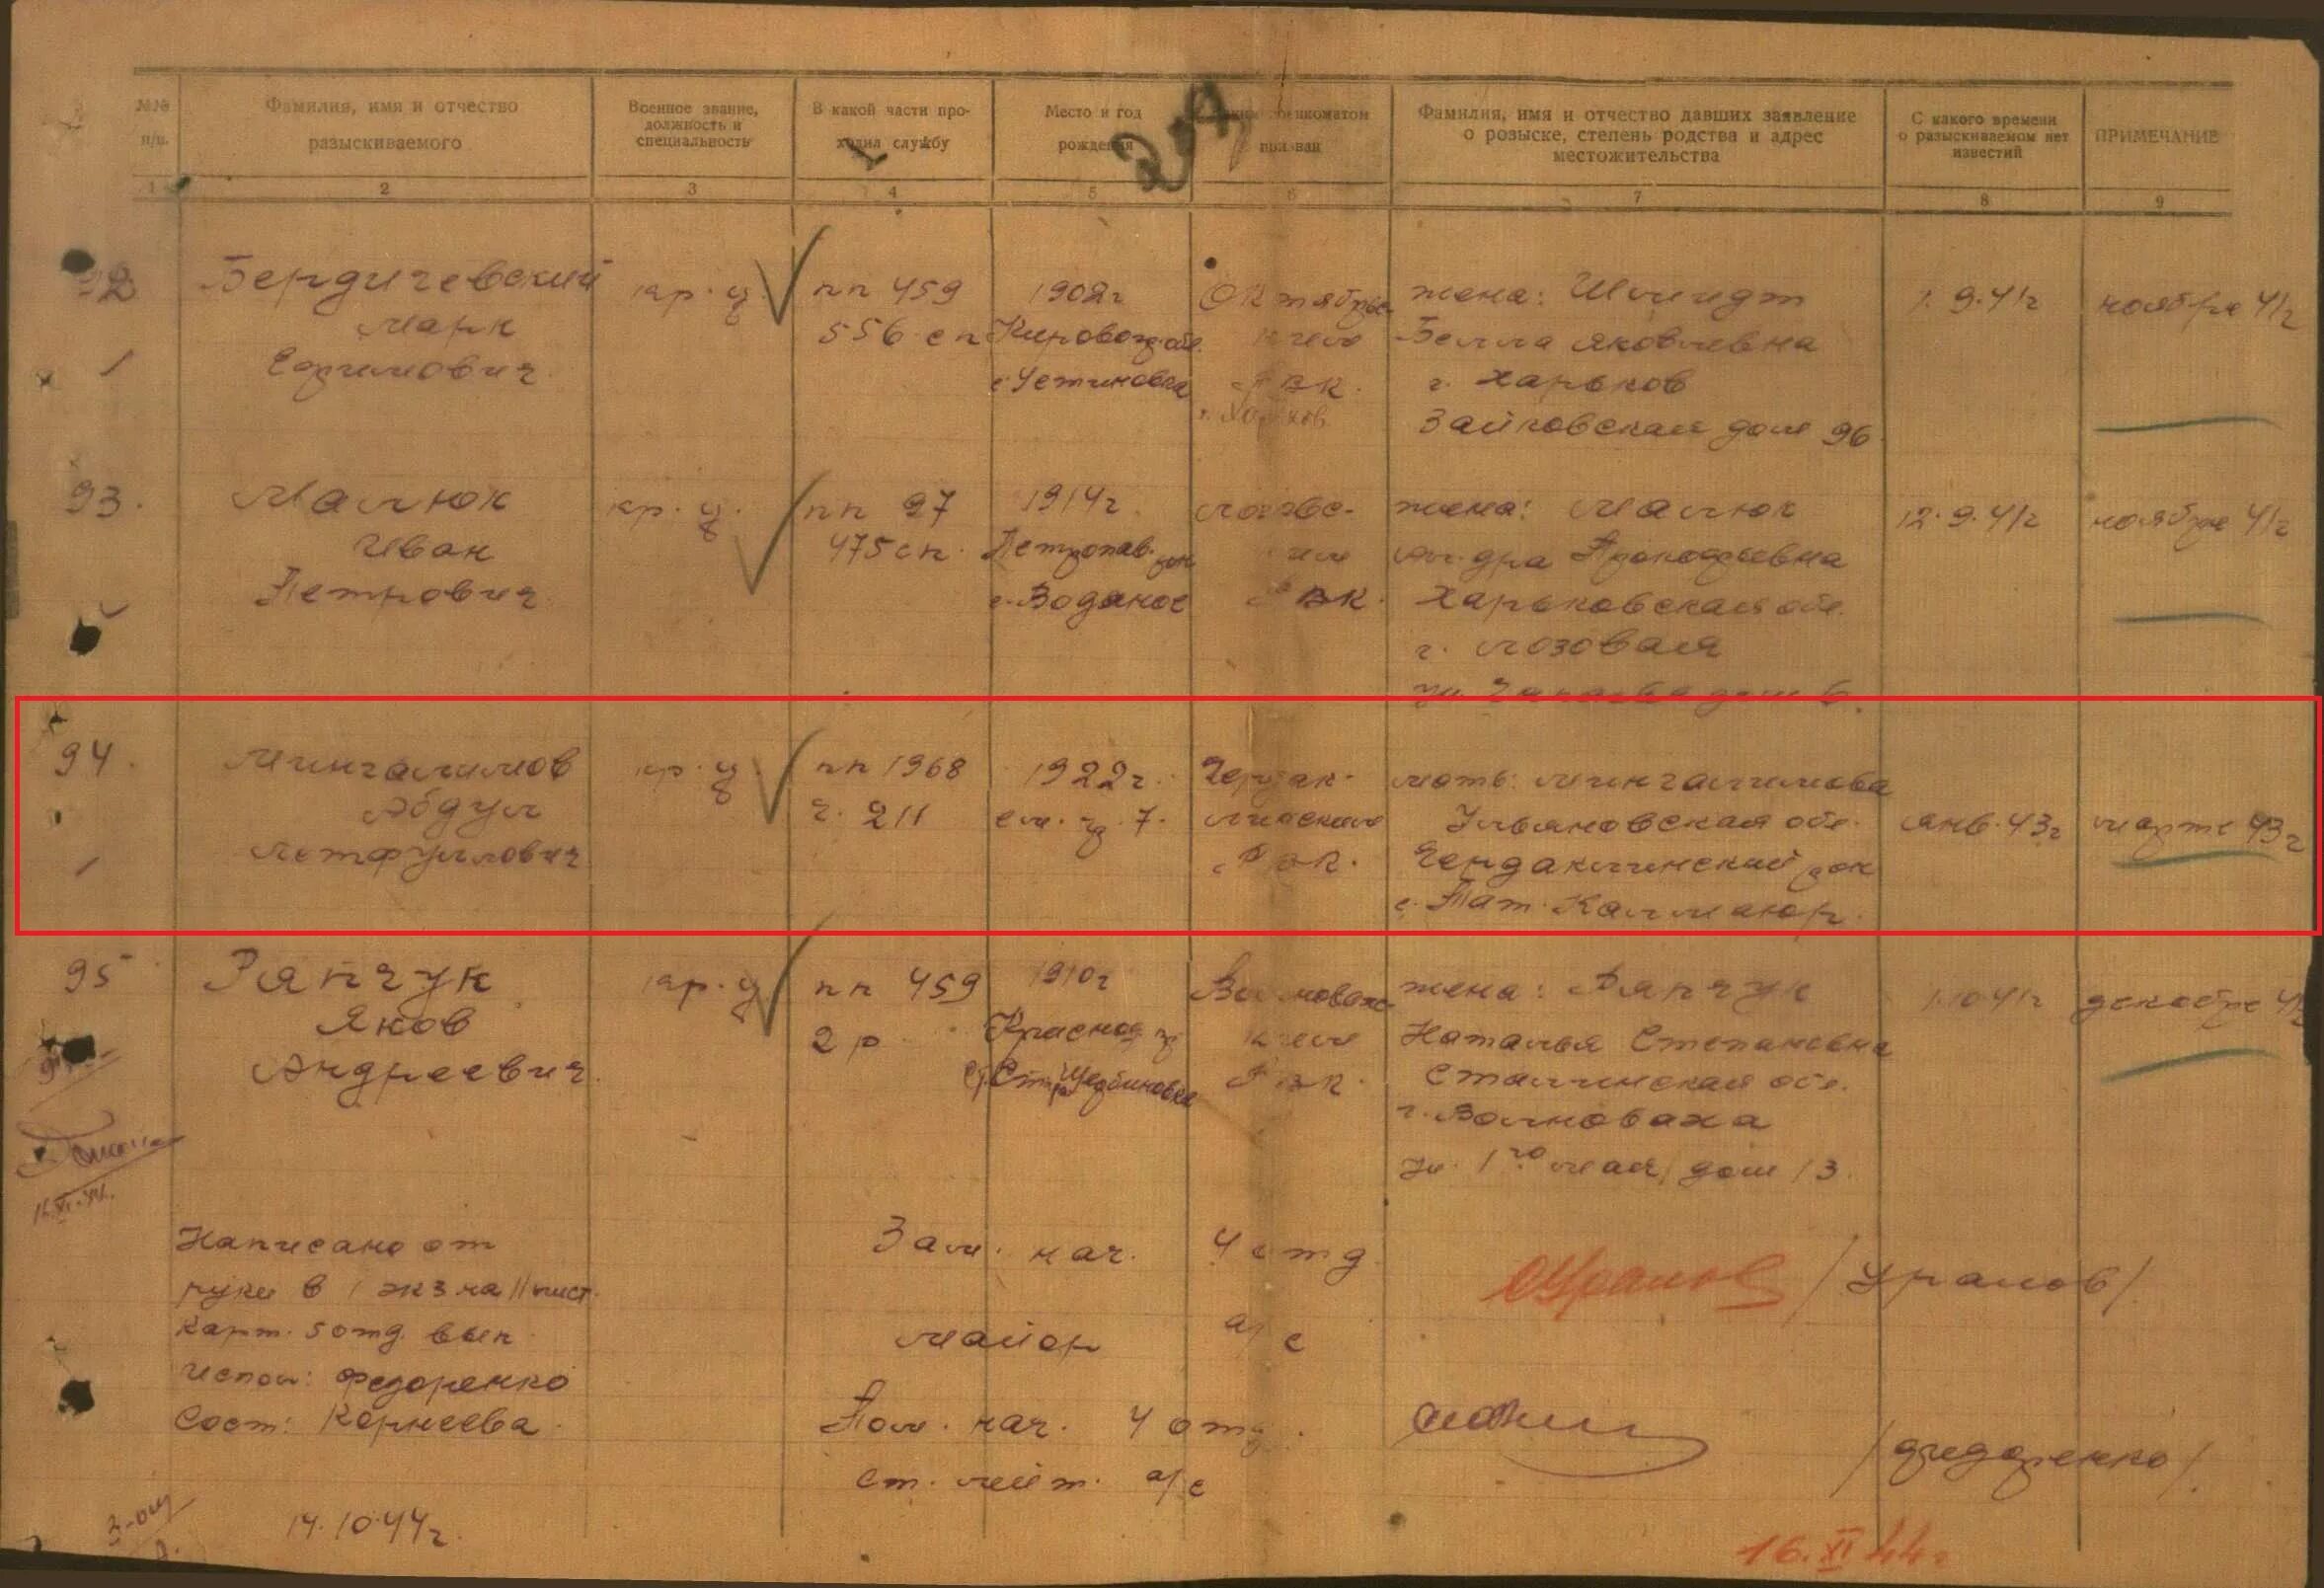 №№ п/п.
Фамилия, имя и отчество разыскиваемого
Военное звание, должность и специальность
В какой части проходил службу
Место и год рождения
военкоматом призван
Фамилия, имя и отчество давших заявление о розыске, степень родства и адрес местожительства
С какого времени о разыскиваемом нет известий
ПРИМЕЧАНИЕ
1 2 3 4 5 6 7 8 9
92
Бердичевский
Марк
Ефимович
кр-ц
пп 459
556 сп
1902г
Кировогр. обл.
с. Устиновка
Октябрь-
ским
РВК.
г. Харьков
жена: Шмидт
Белла Яковлевна
г. Харьков
Заиковская дом 96
1.9.41г
ноябре 41г
93.
Малюк
Иван
Петрович
кр-ц.
пп 97
475 сп.
1914г.
Петропав. рон
с. Водяное
Лозовс-
ким
РВК.
жена: Малюк
Прокофьевна
Харьковская обл.
г. Лозовая
ул. дом
12.9.41г
ноябре 41г
94.
Мингалимов
Абдул
Летфуллович
кр-ц
пп 1968
ч. 211
1922г.
см. гр. 7.
Чердак-
линским
РВК.
мать: Мингалимова
Ульяновская обл.
Чердаклинский рон
с. Тат. Калмаюр.
янв. 43г
марте 43г
95
Ряпчук
Яков
Андреевич.
кр-ц
пп 459
2 р
1910г
Ст. Щербиновка
Волновахс-
ким
РВК.
жена: Ряпчук
Наталья Степановна
Сталинская обл.
г. Волноваха
ул. 1го мая, дом 13.
1.10.41г
декабре 41г
16.XI.44.
Написано от
руки в 1 экз на 11 лист.
Карт. 5 отд. вып.
Испол: Федоренко
Сост: Корнеева.
14.10.44г.
Зам. нач. 4 отд
майор а/с
/Уралов/.
Пом. нач. 4 отд.
ст. лейт. а/с
/Федоренко/.
16.XI 44г